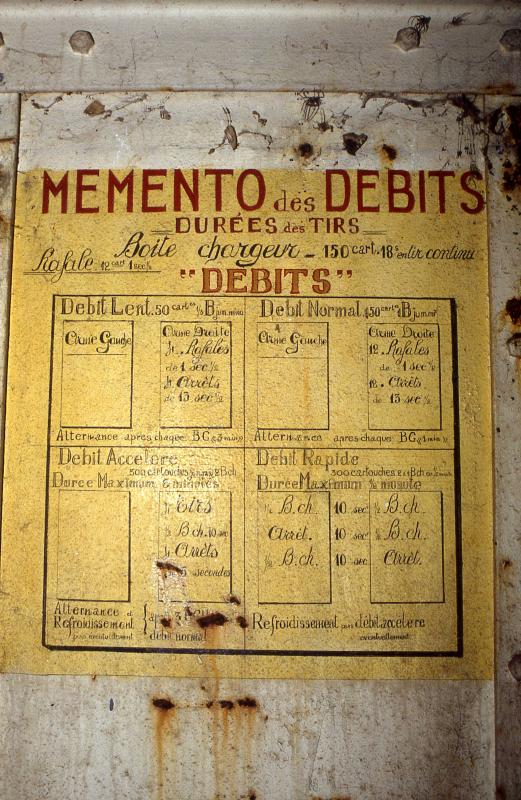 MEMENTO des DEBITS
DURÉES des TIRS
Rafale 12 cart 1 sec ½ Boite chargeur - 150 cart. 18s en tir continu
"DEBITS"
Debit Lent. 50 cart
Arme Gauche
Arme Droite
4. Rafales
de 1 sec ½
4. Arrêts
de 13 sec ½
Alternance apres chaque BC
Debit Normal
Arme Gauche
Arme Droite
12. Rafales
de 1 sec ½
12. Arrêts
de 13 sec ½
Alternance apres chaque BC
Debit Accelere
500 cartouches
Duree Maximum 6 minutes
4 Tirs
½ B.ch. 10 sec
4 Arrêts
secondes
Alternance
Refroidissement
eventuellement
debit normal
Debit Rapide
300 cartouches
Durée Maximum ½ minute
½ B.ch. 10 sec ½ B.ch.
Arrêt. 10 sec ½ B.ch.
½ B.ch. 10 sec Arrêt.
Refroidissement debit accelere
eventuellement